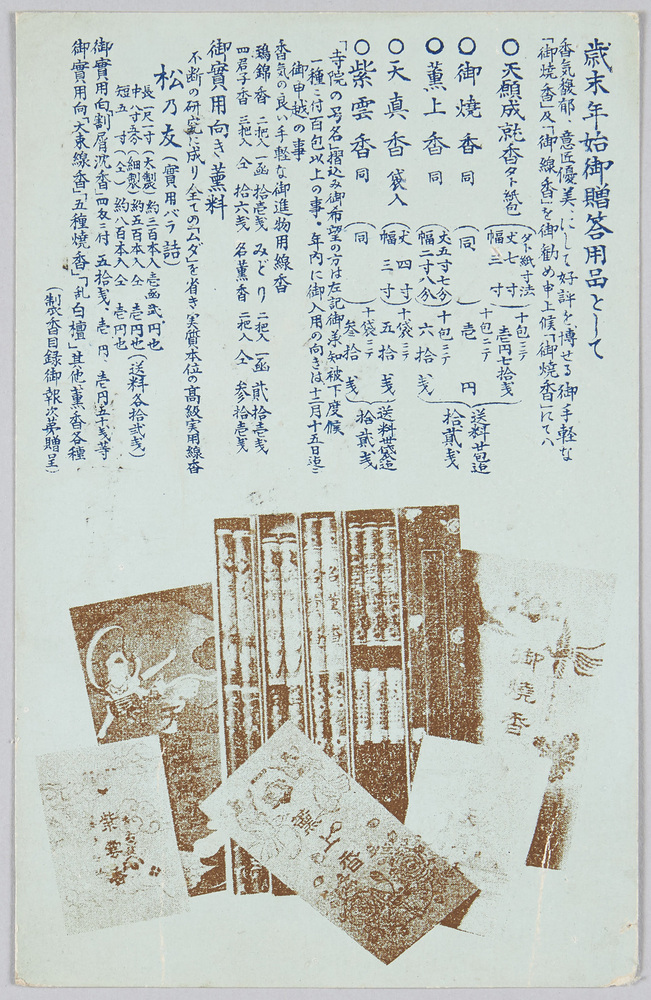 歳末年始御贈答用品として
香気馥郁、意匠優美、にして好評を博せる御手軽な
「御焼香」及「御線香」を御勧め申上候「御焼香」にてハ
○天願成就香タト紙包
タト紙寸法
丈七寸
幅三寸
十包ニテ
壱円七拾戔
○御焼香 同
同
十包ニテ
壱円
○薫上香 同
丈五寸七分
幅二寸八分
十包ニテ
六拾戔
送料廿包迠
拾貳戔
○天真香 袋入
丈四寸
幅三寸
十袋ニテ
五拾戔
○紫雲香 同
同
十袋ニテ
参拾戔
送料廿袋迠
拾貳戔
「寺院の号名」摺込み御希望の方は左記御承知被下度候
一種ニ付百包以上の事・年内に御入用の向きは十二月十五日迠ニ
御申越の事
香気の良い手軽な御進物用線香
鶏錦香 二把入一函 拾壱戔 みどり 二把入一函 貳拾壱戔
四君子香 三把入 仝 拾六戔 名薫香 二把入 仝 参拾壱戔
御實用向き薫料
不断の研究に成り全ての「ムダ」を省き実質本位の高級実用線香
松乃友(實用バラ詰)
長一尺一寸(大製)約三百本入 壱函 貳円也
中八寸五分(細製)約五百本入 仝 壱円也
短五寸(仝)約八百本入 仝 壱円也
(送料各拾貳戔)
御實用向「割屑沈香」百匁ニ付 五拾戔、壱円、壱円五十戔等
御實用向「大東線香」「五種焼香」「乱白檀」其他薫香各種
(製香目録御報次第贈呈)
御焼香
名薫香
紫雲香
薫上香